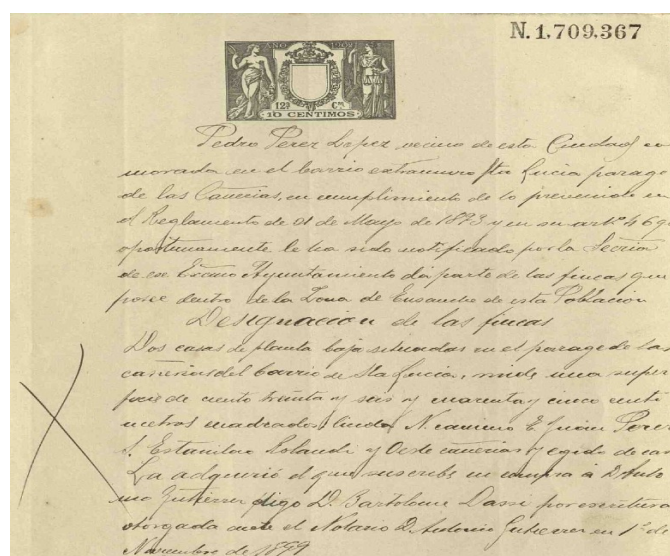 N. 1.709.367
AÑO 1902
12ª Cᴱ
10 CENTIMOS
Pedro Perez Lopez, vecino de esta Ciudad, co
morada en el barrio extramuro Sta Lucia parage
de las Cañerias, en cumplimiento de lo prevenido en
el Reglamento de 31 de Mayo de 1893 y en su artº 46 q
oportunamente le ha sido notificado por la Secria
de ese Excmo Ayuntamiento da parte de las fincas que
posee dentro de la Zona de Ensanche de esta Poblacion
Designacion de las fincas
Dos casas de planta baja situadas en el parage de las
cañerias del barrio de Sta Lucia, mide una super
ficie de ciento treinta y seis y cuarenta y cinco centi
metros cuadrados linda N. camino E. Juan Perez
S. Estanislao Rolandi y Oeste cañerias y egido de
La adquirió el que suscribe en compra á D. Anto
nio Gutierrez digo D. Bartolome Dassi por escritura
otorgada ante el Notario D. Antonio Gutierrez en 1º d
Noviembre de 1899